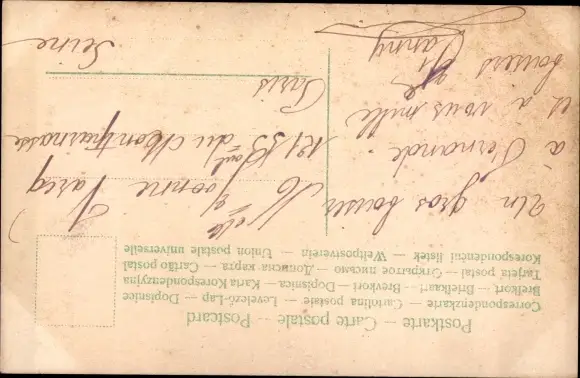 Postkarte — Carte postale — Postcard
Correspondenzkarte — Cartolina postale — Levelező-Lap — Dopisnice
Brefkort — Briefkaart — Brevkort — Dopisnica — Karta Korespondencyjna
Tarjeta postal — Открытое письмо — Дописна карта — Cartão postal
Korespondenční lístek — Weltpostverein — Union postale universelle
Un gros baiser
à Fernande.
et à vous mille
baisers
Fanny
Melle Yvonne
131 Bd du Montparnasse
Paris
Seine